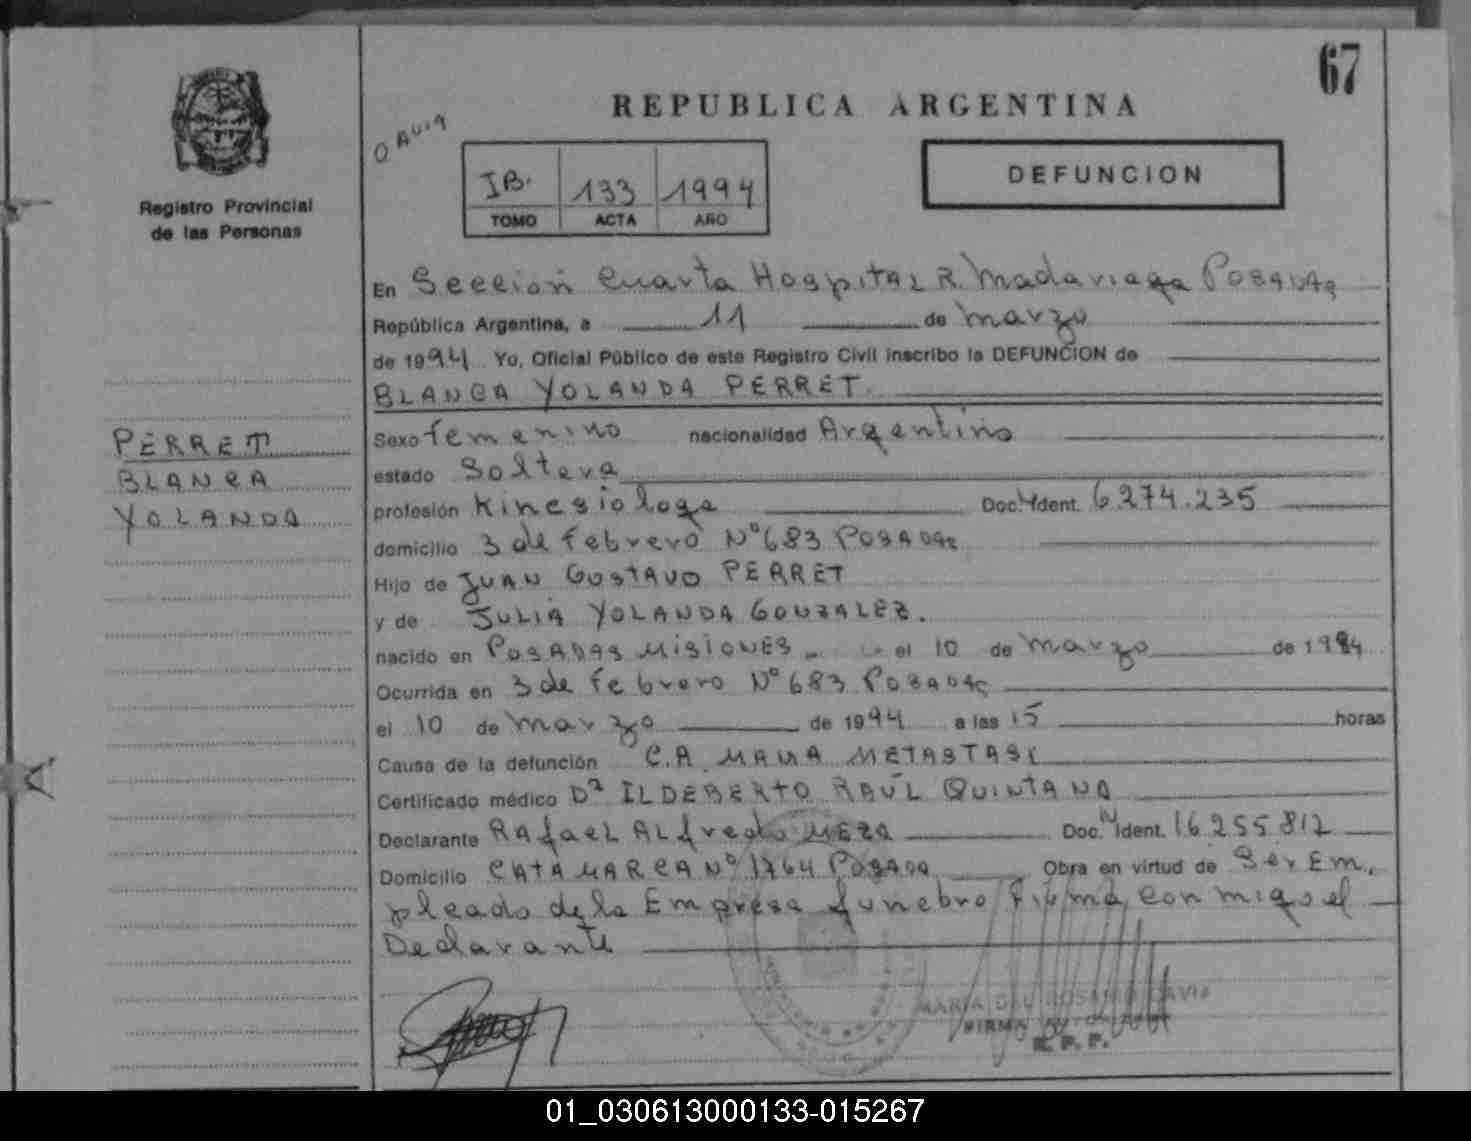 67
REPUBLICA ARGENTINA
DEFUNCION
IB. 133 1994
TOMO ACTA AÑO
Registro Provincial
de las Personas
En Seccion Cuarta Hospital R. Madariaga Posadas
República Argentina, a 11 de marzo
de 1994 Yo, Oficial Público de este Registro Civil inscribo la DEFUNCION de
BLANCA YOLANDA PERRET
PERRET
BLANCA
YOLANDA
Sexo femenino nacionalidad Argentino
estado Soltera
profesión Kinesiologa Doc. Ident. 6.274.235
domicilio 3 de febrero Nº 683 POSADAS
Hijo de JUAN GUSTAVO PERRET
y de JULIA YOLANDA GONZALEZ.
nacido en POSADAS MISIONES el 10 de marzo de 19
Ocurrida en 3 de febrero Nº 683 POSADAS
el 10 de marzo de 1994 a las 15 horas
Causa de la defunción C.A. MAMA METASTASI
Certificado médico Dr ILDEBERTO RAÚL QUINTANA
Declarante RAfaeL ALfredo MEZA Doc. N Ident. 16.255.812
Domicilio CATAMARCA Nº 1764 POSADA Obra en virtud de Ser Em.
pleado de la Empresa funebre firma con migo el
Declarante
MARIA DEL ROSARIO
FIRMA
R. P. P.
01_030613000133-015267